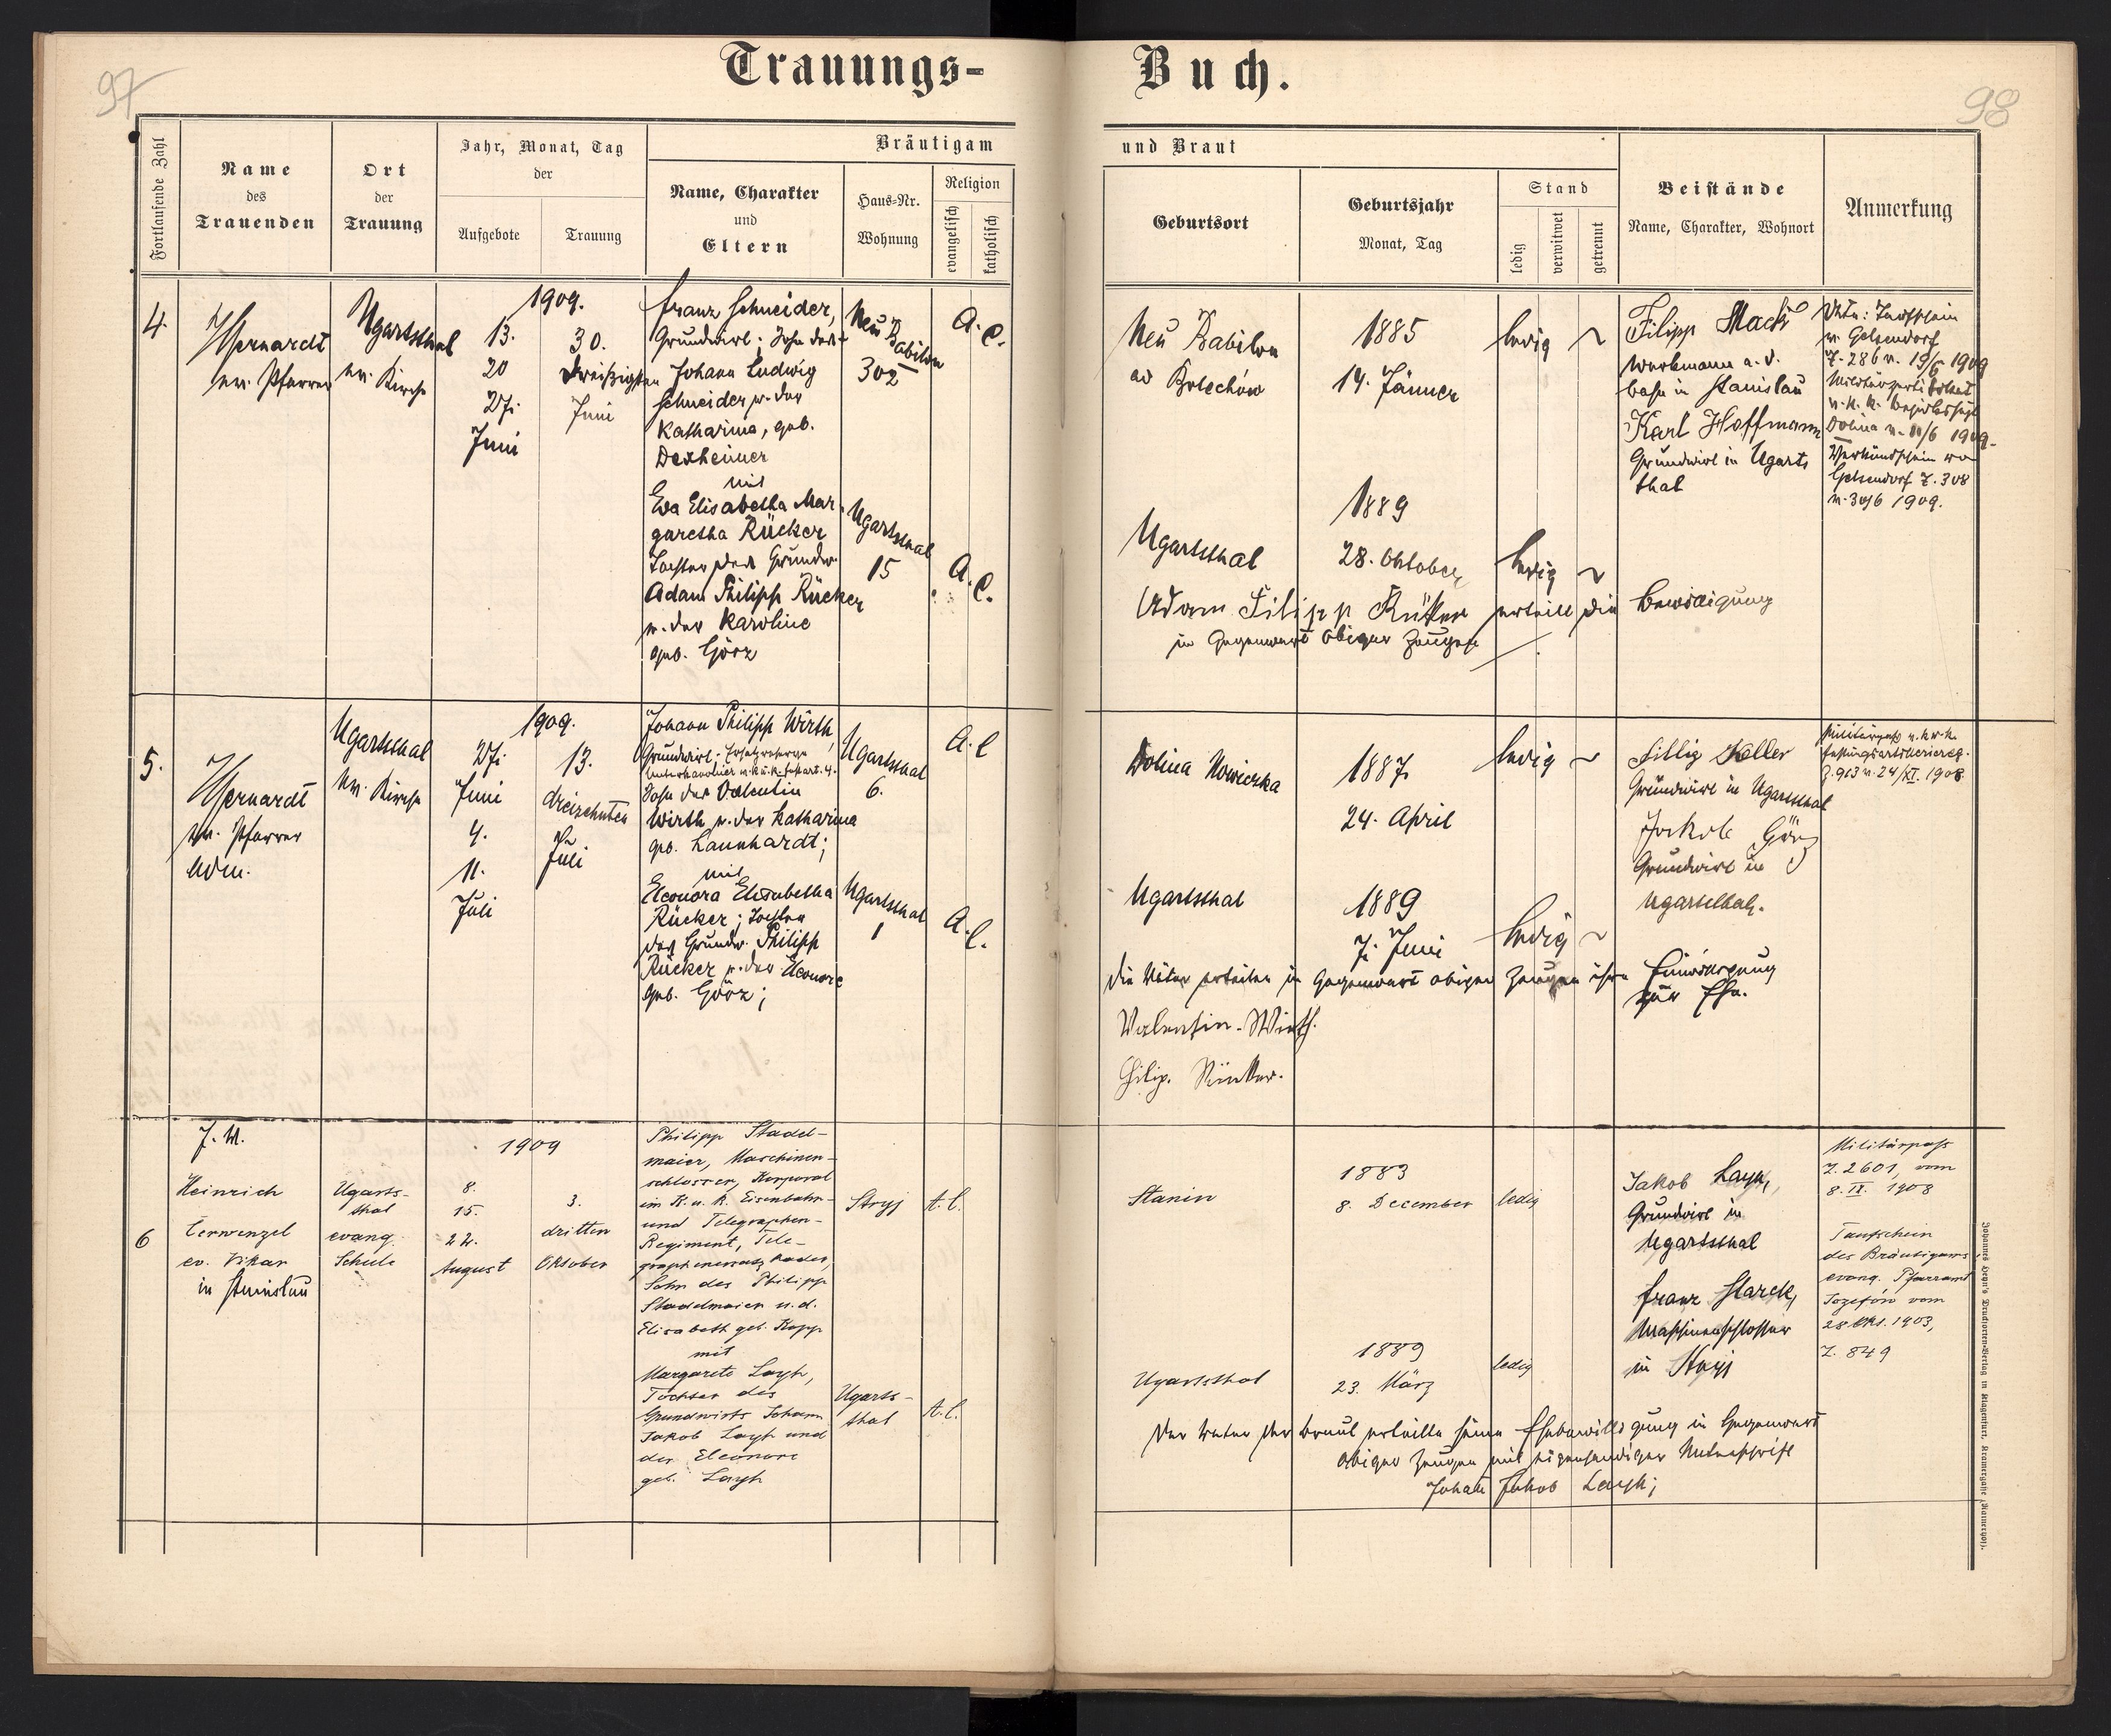 97
Trauungs-
Fortlaufende Zahl
Name
des
Trauenden
Ort
der
Trauung
Jahr, Monat, Tag
der
Aufgebote
Trauung
Bräutigam
Name, Charakter
und
Eltern
Haus-Nr.
Wohnung
Religion
evangelisch
katholisch
4.
ev. Pfarrer
Ugartsthal
ev. Kirche
1909.
13.
20
27.
Juni
30.
dreißigsten
Juni
Franz Schneider,
Grundwirt; Sohn des
Johann Ludwig
Schneider u. der
Katharina, geb.
Dexheimer
mit
Eva Elisabetha Mar-
garetha Rücker
Tochter des Grundw.
Adam Philipp Rücker
u. der Karoline
geb. Görz
Neu Babilon
302
Ugartsthal
15
A. C.
A. C.
5.
ev. Pfarrer
Adm.
Ugartsthal
ev. Kirche
1909.
27.
Juni
4.
11.
Juli
13.
dreizehnten
Juli
Johann Philipp Wirth,
Grundwirt, Ersatzreserve
Sohn des Valentin
Wirth u. der Katharina
geb. Launhardt;
mit
Eleonora Elisabetha
Rücker; Tochter
des Grundw. Philipp
Rücker u. der Eleonore
geb. Görz;
Ugartsthal
6.
Ugartsthal
1
A. C
A. C.
6
Heinrich
Lerwenzel
ev. Vikar
in Stanislau
Ugarts-
thal
evang.
Schule
1909
8.
15.
22.
August
3.
dritten
Oktober
Philipp Stadel-
maier, Maschinen-
schlosser, Korporal
im K. u. k. Eisenbahn-
und Telegraphen-
Regiment, Tele-
Sohn des Philipp
Stadelmaier u. d.
Elisabeth geb. Kopp
mit
Margarete Layh,
Tochter des
Grundwirts Johann
Jakob Layh und
der Eleonore
geb. Layh
Stryj
Ugarts-
thal
A. C.
A. C.
98
Buch.
und Braut
Geburtsort
Geburtsjahr
Monat, Tag
Stand
ledig
verwitwet
getrennt
Beistände
Name, Charakter, Wohnort
Anmerkung
Neu Babilon
ad Bolechów
1885
14. Jänner
ledig
Filipp Mack
Werkmann a. d.
bahn in Stanislau
Karl Hoffmann
Grundwirt in Ugarts
thal
Taufschein
v. Gelsendorf
Z. 286 v. 1909
Dolina v. 11/6 1909.
Verkündschein von
Gelsendorf Z. 308
v. 30/6 1909.
Ugartsthal
1889
28. Oktober
ledig
Adam Filipp Rücker erteilt die Bewilligung
in Gegenwart obiger Zeugen
Dolina Nowiczka
1887
24. April
ledig
Fillip Koller
Grundwirt in Ugartsthal
Jakob Görz
Grundwirt in
Ugartsthal.
Z. 913 v. 24/XI. 1908
Ugartsthal
1889
7. Juni
ledig
Die Väter erteilen in Gegenwart obiger Zeugen ihre Einwilligung
zur Ehe.
Valentin Wirth.
Filip. Rücker.
Stanin
1883
8. December
ledig
Jakob Layh,
Grundwirt in
Ugartsthal
Franz Starck,
Maschinenschlosser
in Stryj
Militärpass
Z. 2601, vom
8. IX. 1908
Taufschein
des Bräutigams
evang. Pfarramt
Josefów vom
28 Okt. 1903,
Z. 849
Ugartsthal
1889
23. März
ledig
Der Vater der Braut erteilte seine Ehebewilligung in Gegenwart
obiger Zeugen mit eigenhändiger Unterschrift
Johan Jakob Layh;
Johannes Heyn's Drucksorten-Verlag in Klagenfurt, Kramergasse